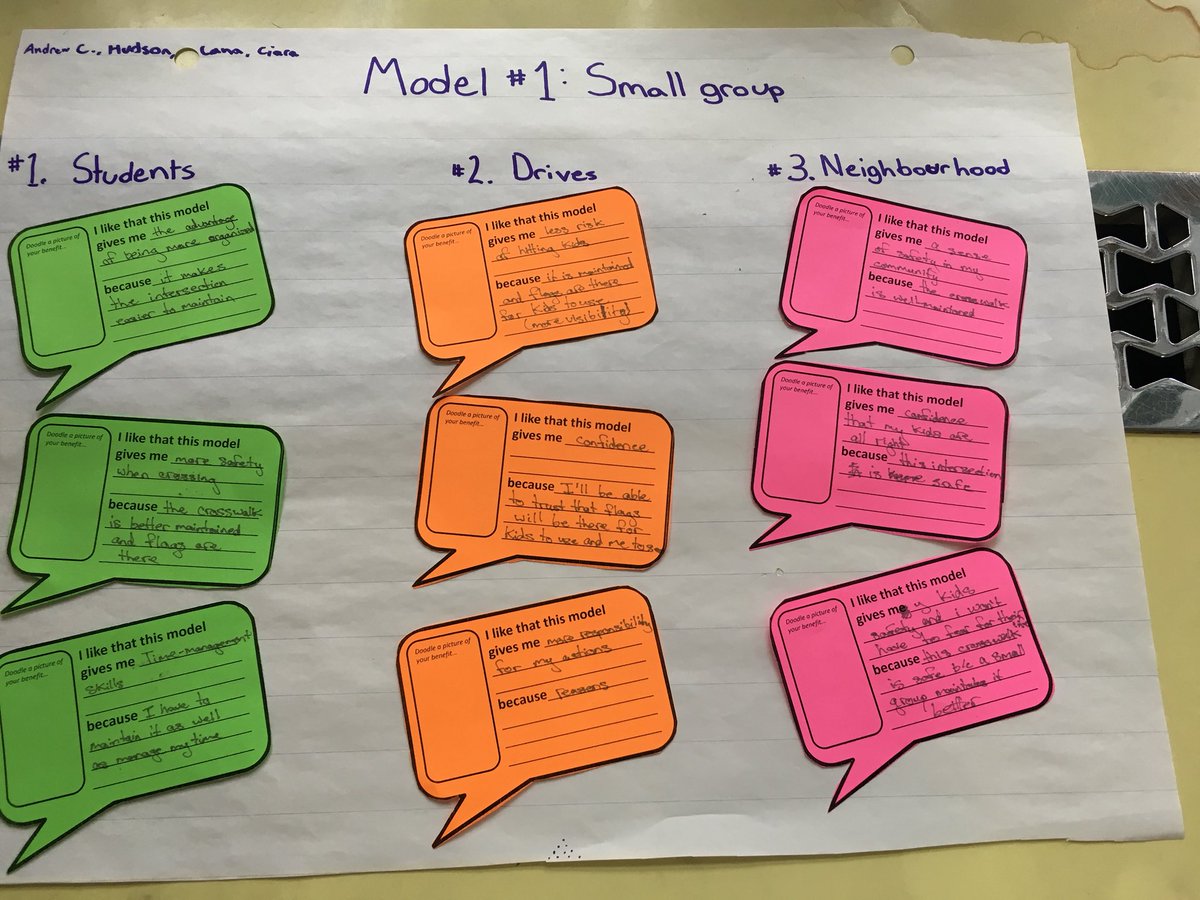 Andrew C., Hudson, Lana, Ciara
Model #1: Small group
#1. Students
Doodle a picture of
your benefit...
I like that this model
gives me the advantage
of being more organized
because it makes
the intersection
easier to maintain
Doodle a picture of
your benefit...
I like that this model
gives me more safety
when crossing
because the crosswalk
is better maintained
and flags are
there
Doodle a picture of
your benefit...
I like that this model
gives me Time-management
skills
because I have to
maintain it as well
as manage my time
#2. Drives
Doodle a picture of
your benefit...
I like that this model
gives me less risk
of hitting kids
because it is maintained
and flags are there
for kids to use
(more visibility)
Doodle a picture of
your benefit...
I like that this model
gives me confidence
because I'll be able
to trust that flags
will be there for
kids to use and me to see
Doodle a picture of
your benefit...
I like that this model
gives me more responsibility
for my actions
because reasons
#3. Neighbourhood
Doodle a picture of
your benefit...
I like that this model
gives me a sense
of safety in my
community
because the crosswalk
is well maintained
Doodle a picture of
your benefit...
I like that this model
gives me confidence
that my kids are
all right
because this intersection
is safe
Doodle a picture of
your benefit...
I like that this model
gives my kids
safety and i won't
have to fear for their
because this crosswalk
is safe b/c a small
group maintains it
better